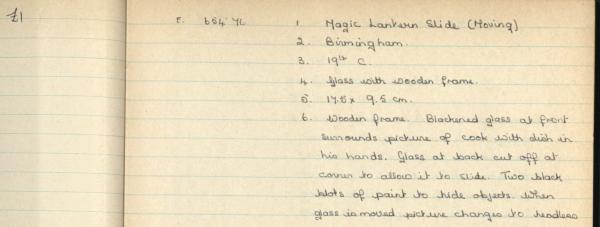 £1
F. 654'76
1 Magic Lantern Slide (Moving)
2. Birmingham.
3. 19th C.
4. Glass with wooden frame.
5. 17.5 x 9.5 cm.
6. Wooden frame. Blackened glass at front
surrounds picture of cook with dish in
his hands. Glass at back cut off at
corner to allow it to slide. Two black
blots of paint to hide objects. When
glass is moved picture changes to headless